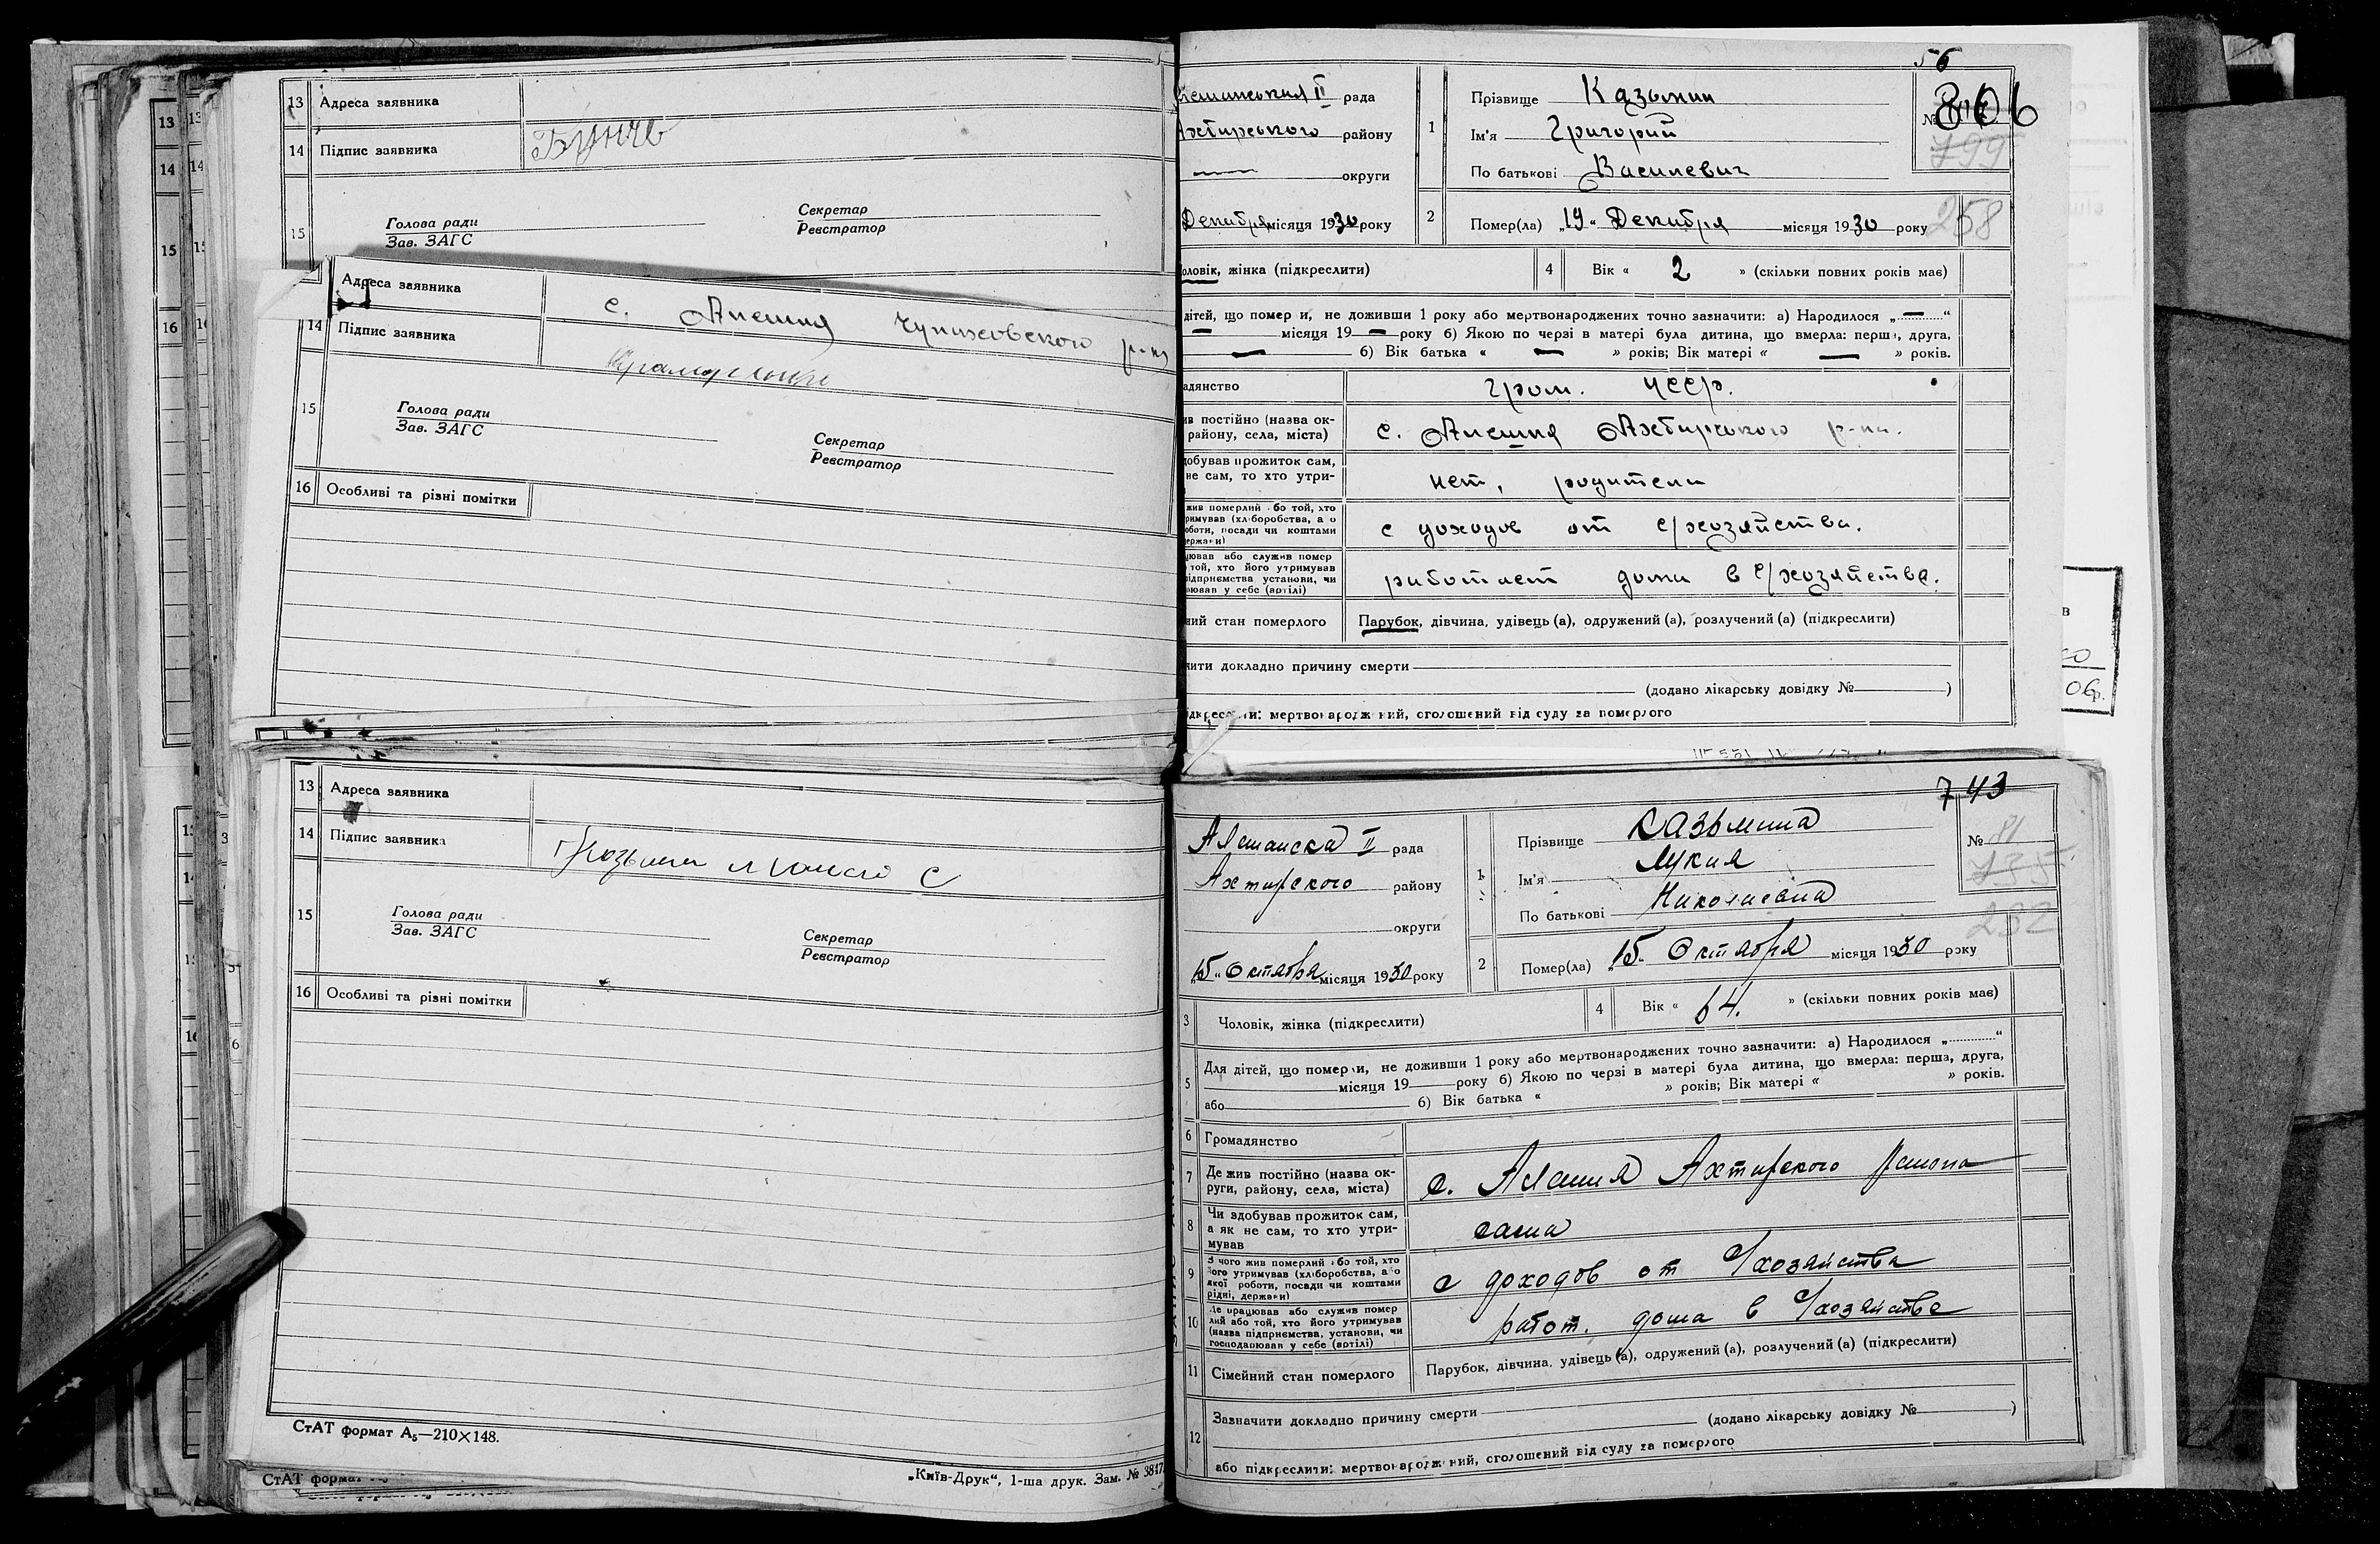 13 Адреса заявника
14 Підпис заявника
15
Голова ради
Зав. ЗАГС
Секретар
Реєстратор
Адреса заявника с. Алешня Чупаховского р-на
14 Підпис заявника
15
Голова ради
Зав. ЗАГС
Секретар
Реєстратор
16 Особливі та різні помітки
13 Адреса заявника
14 Підпис заявника
15
Голова ради
Зав. ЗАГС
Секретар
Реєстратор
16 Особливі та різні помітки
СтАТ формат А₅—210×148.
„Київ-Друк“, 1-ша друк. Зам. № 3847
56
рада
806
799
району
округи
Декабря місяця 1930 року
1
Прізвище Казьмин
Ім'я Григорий
По батькові Василевич
2 Помер(ла) „19“ Декабря місяця 1930 року
258
оловік, жінка (підкреслити)
4 Вік « 2 » (скільки повних років має)
дітей, що помер и, не доживши 1 року або мертвонароджених точно зазначити: а) Народилося „ — “
— місяця 19 — року б) Якою по черзі в матері була дитина, що вмерла: перша, друга,
— 6) Вік батька « — » років; Вік матері « — » років.
адянство гром. УССР.
ив постійно (назва ок-
району, села, міста) с. Алешня Ахтирського р-на.
добував прожиток сам,
не сам, то хто утри- нет, родители
жив померлий або той, хто
римував (хліборобства, а о
оботи, посади чи коштами
ержави) с доходов от с/хозяйства.
цював або служив помер
той, хто його утримував
підприємства установи, чи
рював у себе (артілі) работает дома в с/хозяйстве.
ний стан померлого Парубок, дівчина, удівець (а), одружений (а), розлучений (а) (підкреслити)
чити докладно причину смерти
(додано лікарську довідку № )
ідкреслити: мертвонароджений, оголошений від суду за померлого
743
Алешанска II рада
Ахтирского району
округи
„15“ Октября місяця 1930 року
1
Прізвище Казьмина
Ім'я Лукия
По батькові Николаевна
№ 81
735
232
2 Помер(ла) „15“ Октября місяця 1930 року
3 Чоловік, жінка (підкреслити)
4 Вік « 64. » (скільки повних років має)
5 Для дітей, що померли, не доживши 1 року або мертвонароджених точно зазначити: а) Народилося „ “
місяця 19 року б) Якою по черзі в матері була дитина, що вмерла: перша, друга,
або 6) Вік батька « » років; Вік матері « » років.
6 Громадянство
7 Де жив постійно (назва ок-
руги, району, села, міста) с. Алешня Ахтирского района
8 Чи здобував прожиток сам,
а як не сам, то хто утри-
мував сама
9 З чого жив померлий або той, хто
його утримував (хліборобства, або
якої роботи, посади чи коштами
рідні, держави) с доходов от с/хозяйства
10 Де працював або служив помер
лий або той, хто його утримував
(назва підприємства, установи, чи
господарював у себе (артілі) работ. дома в с/хозяйстве
11 Сімейний стан померлого Парубок, дівчина, удівець (а), одружений (а), розлучений (а) (підкреслити)
12 Зазначити докладно причину смерти
(додано лікарську довідку № )
або підкреслити: мертвонароджений, оголошений від суду за померлого